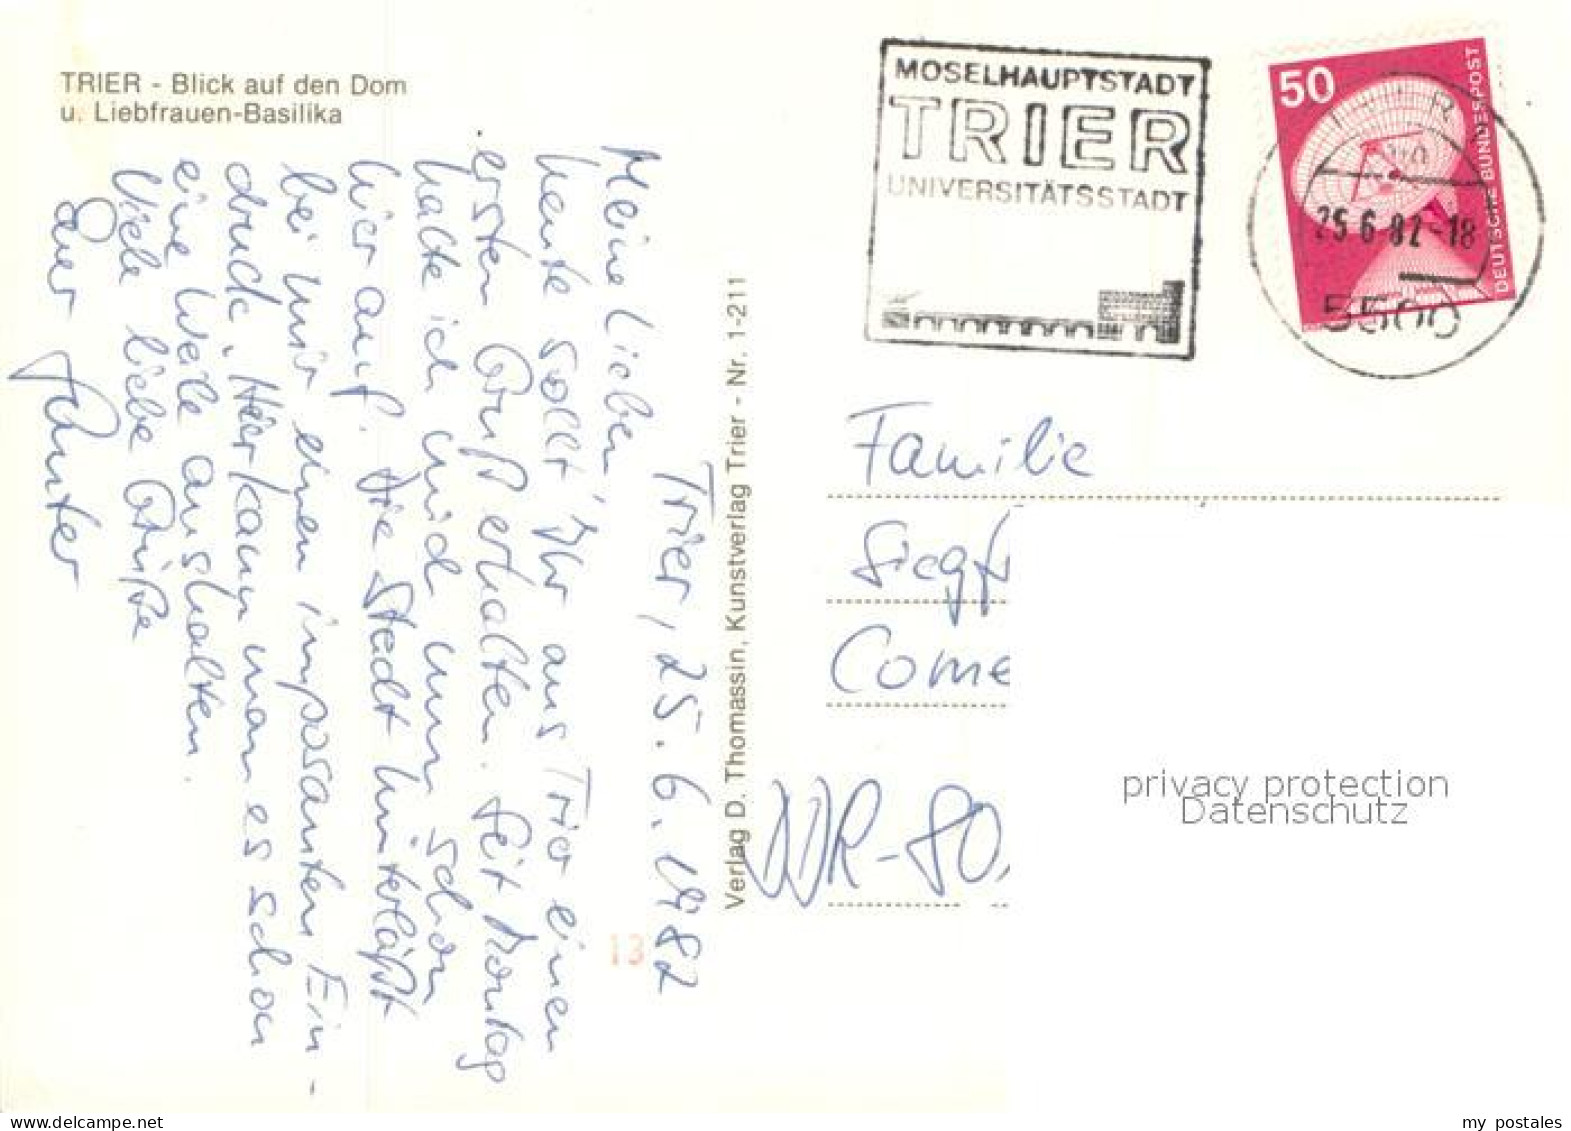 TRIER - Blick auf den Dom
u. Liebfrauen-Basilika
Trier, 25.6.1982
Meine Lieben,
heute sollt Ihr aus Trier einen
ersten Gruß erhalten. Seit Montag
halte ich mich nun schon
hier auf. Die Stadt hinterläßt
bei mir einen imposanten Ein-
druck. Hier kann man es schon
eine Weile aushalten.
Viele liebe Grüße
Euer Gunter
Verlag D. Thomassin, Kunstverlag Trier - Nr. 1-211
13
MOSELHAUPTSTADT
TRIER
UNIVERSITÄTSSTADT
50
DEUTSCHE BUNDESPOST
TRIER
25.6.82-18
5500
Familie
Siegf
Come
DDR-80
privacy protection
Datenschutz
my postales